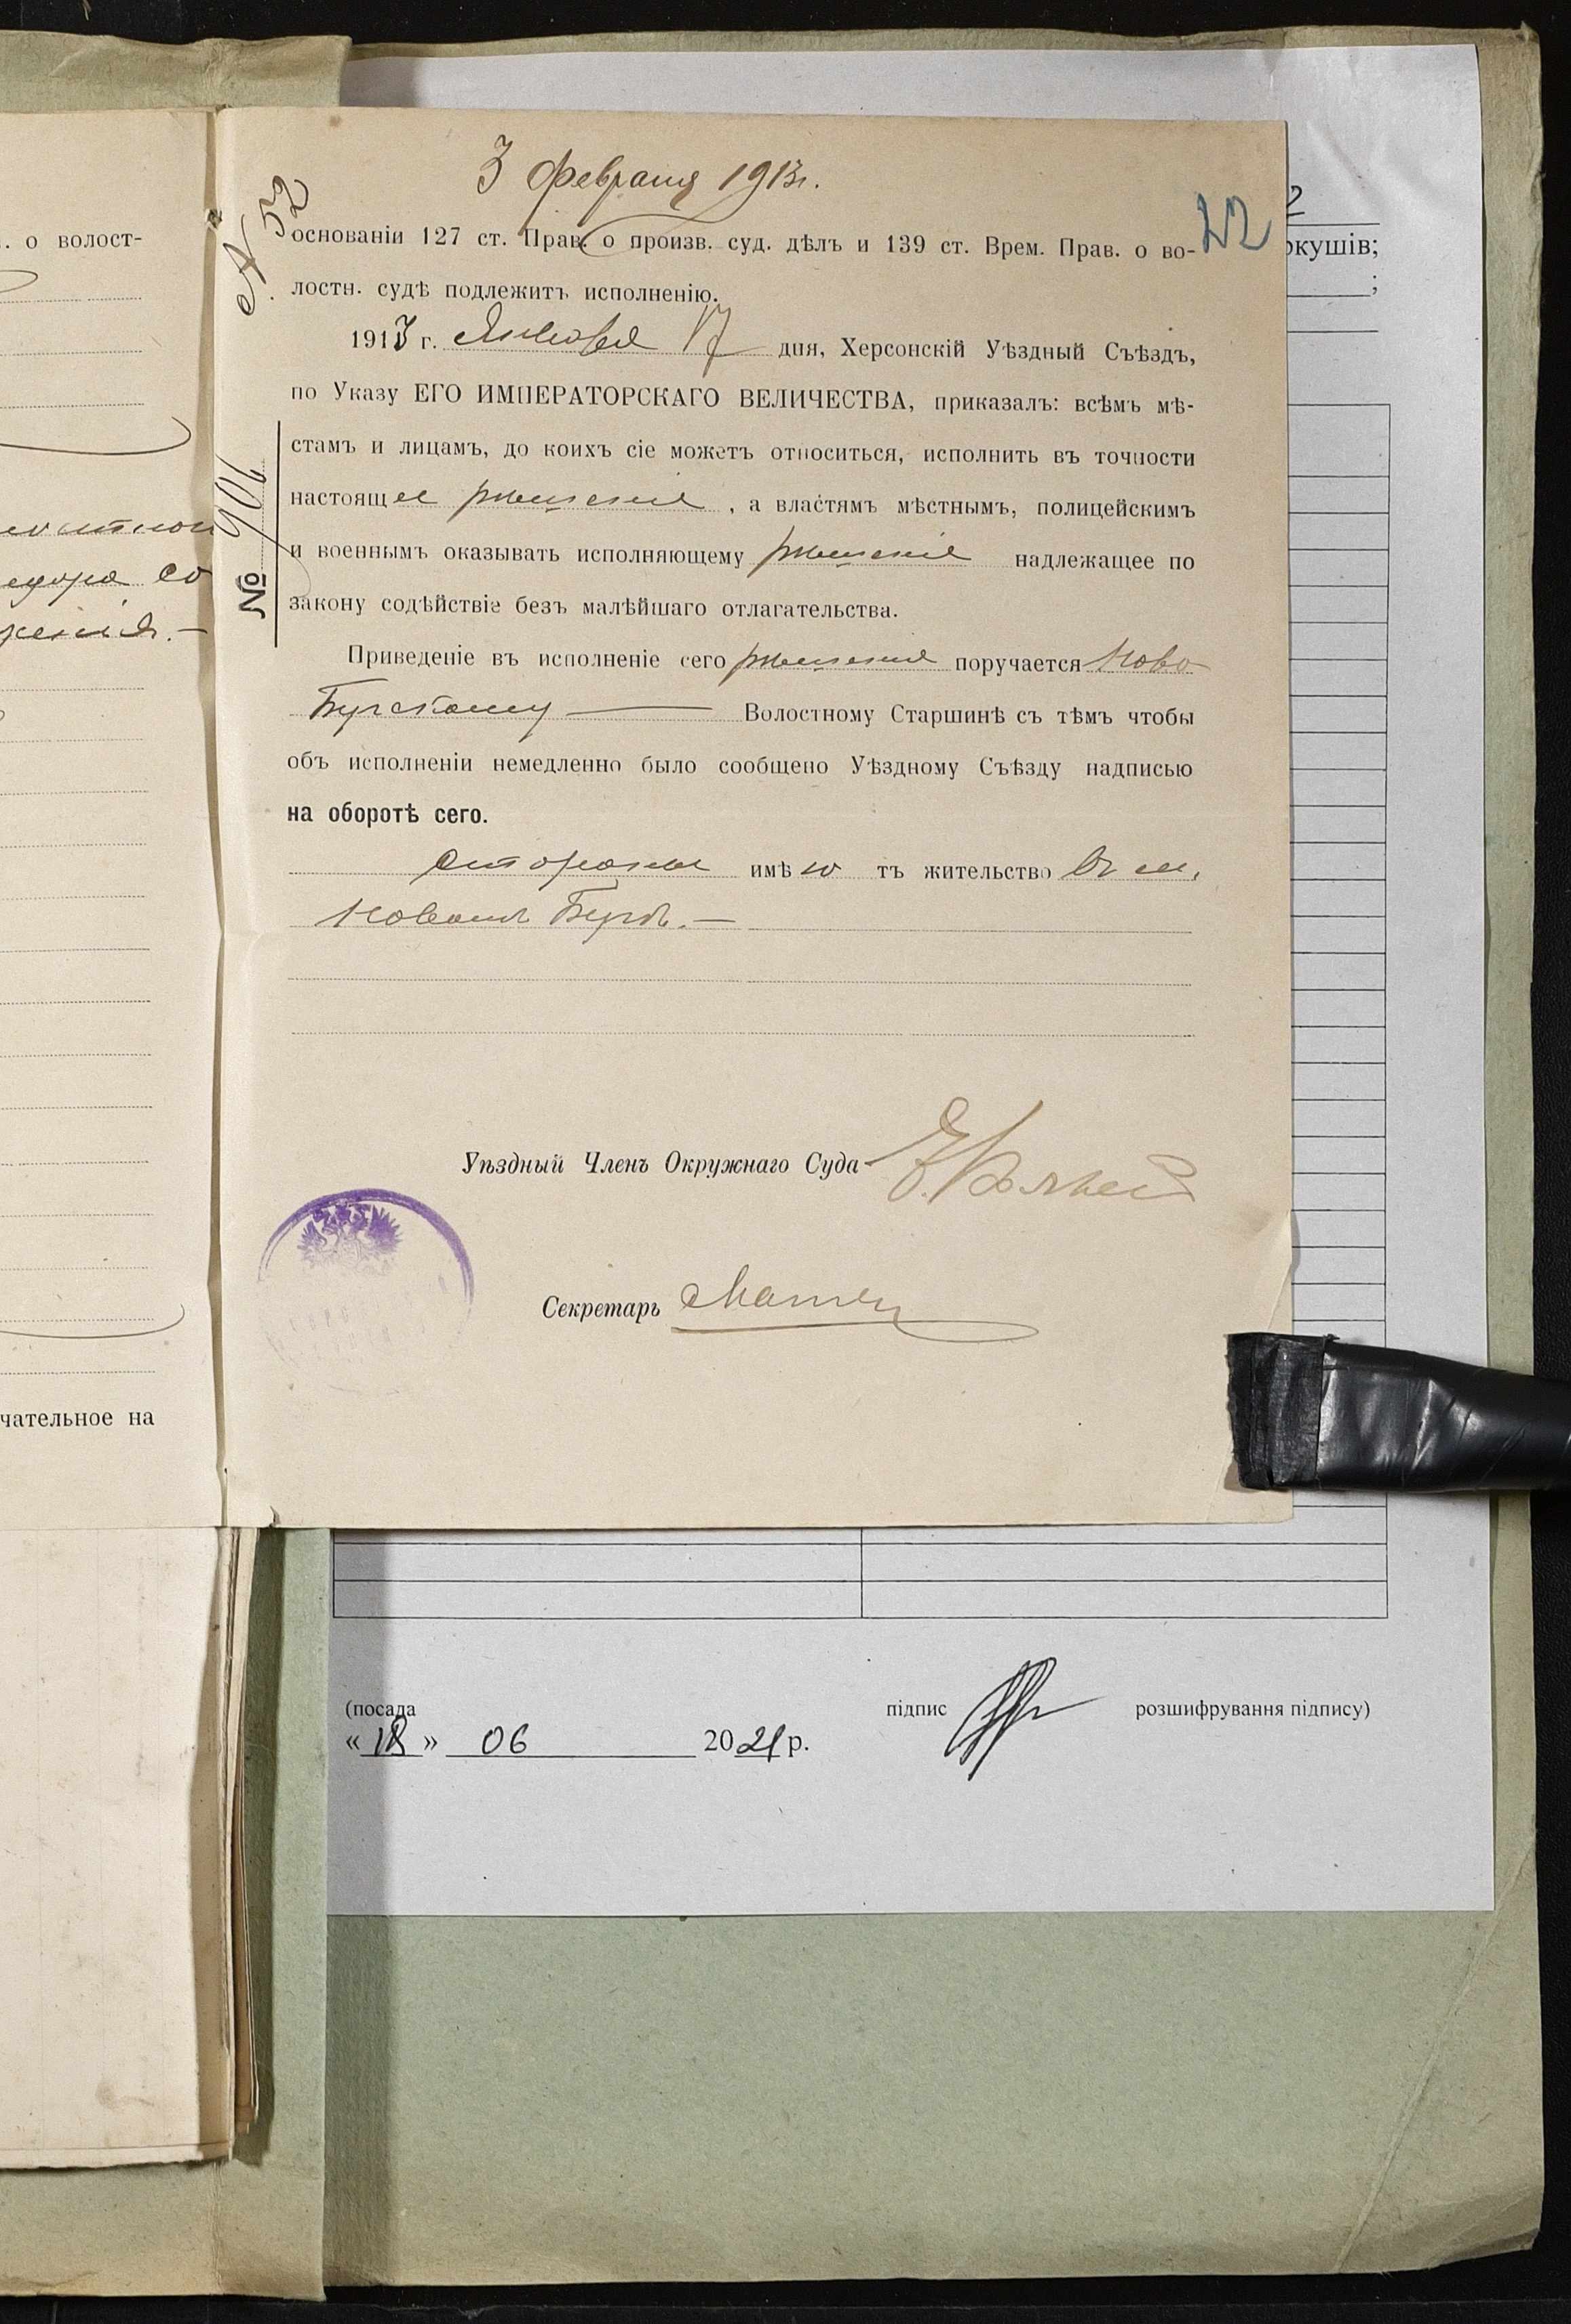 . о волост-
чательное на
3 февраля 1913г.
N 52
22
основаніи 127 ст. Прав. о произв. суд. дѣлъ и 139 ст. Врем. Прав. о во-
лостн. судѣ подлежитъ исполненію.
1913 г. Января 17 дня, Херсонскій Уѣздный Съѣздъ,
по Указу ЕГО ИМПЕРАТОРСКАГО ВЕЛИЧЕСТВА, приказалъ: всѣмъ мѣ-
стамъ и лицамъ, до коихъ сіе можетъ относиться, исполнить въ точности
настоящее рѣшеніе, а властямъ мѣстнымъ, полицейскимъ
и военнымъ оказывать исполняющему рѣшеніе надлежащее по
закону содѣйствіе безъ малѣйшаго отлагательства.
№ 906
Приведеніе въ исполненіе сего рѣшенія поручается Ново
Бугскому — Волостному Старшинѣ съ тѣмъ чтобы
объ исполненіи немедленно было сообщено Уѣздному Съѣзду надписью
на оборотѣ сего.
стороны имѣютъ жительство въ м.
Новомъ Бугѣ. —
Уѣздный Членъ Окружнаго Суда
Секретарь
2
ркушів;
;
(посада
підпис
розшифрування підпису)
« 18 » 06 2021 р.